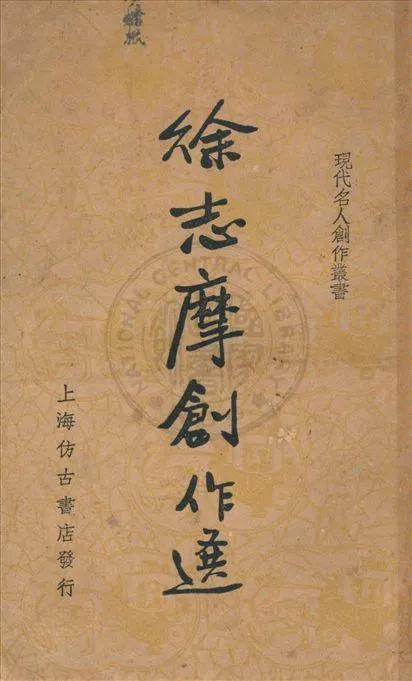 現代名人創作叢書
徐志摩創作選
上海仿古書店發行
NATIONAL CENTRAL LIBRARY